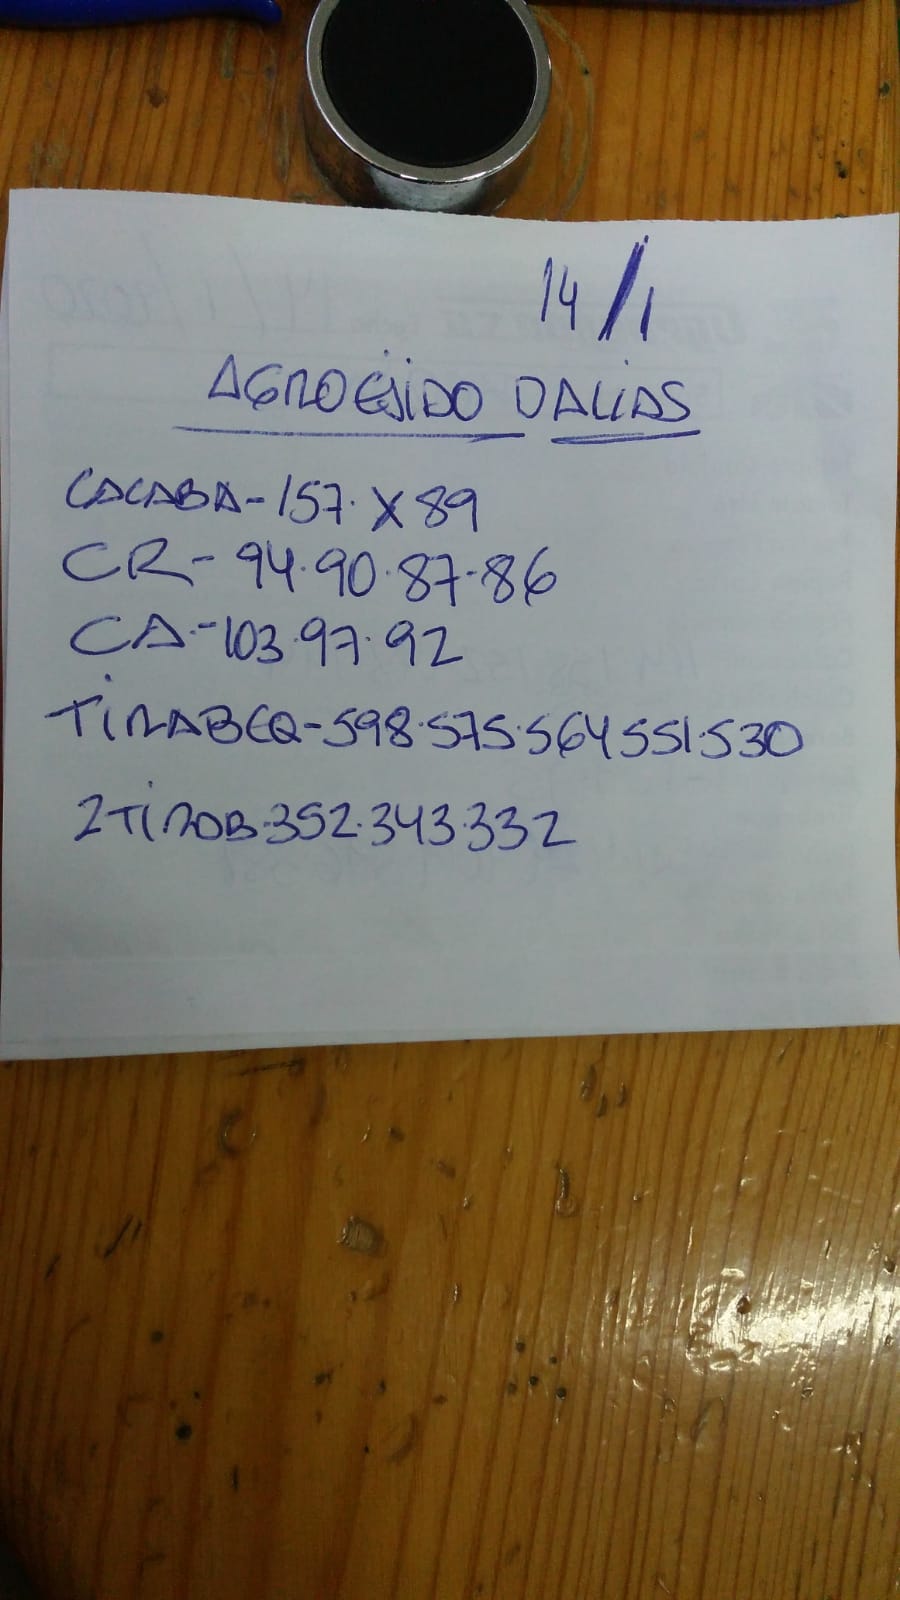 14/1
AGROEJIDO DALIAS
CACABA-157·X89
CR-94·90·87·86
CA-103·97·92
TIRABEQ-598·575·564 551·530
2TIROB·352·343·332